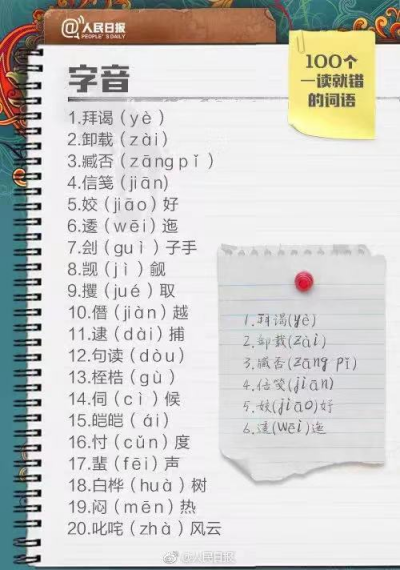 @人民日报
PEOPLE'S DAILY
100个
一读就错
的词语
字音
1.拜谒（yè）
2.卸载（zài）
3.臧否（zāngpǐ）
4.信笺（jiān)
5.姣（jiāo）好
6.逶（wēi）迤
7.刽（guì）子手
8.觊（jì）觎
9.攫（jué）取
10.僭（jiàn）越
11.逮（dài）捕
12.句读（dòu）
13.桎梏（gù）
14.伺（cì）候
15.皑皑（ái）
16.忖（cǔn）度
17.蜚（fēi）声
18.白桦（huà）树
19.闷（mēn）热
20.叱咤（zhà）风云
1.拜谒(yè)
2.卸载(zài)
3.臧否(zāng pǐ)
4.信笺(jiān)
5.姣(jiāo)好
6.逶(wēi)迤
@人民日报